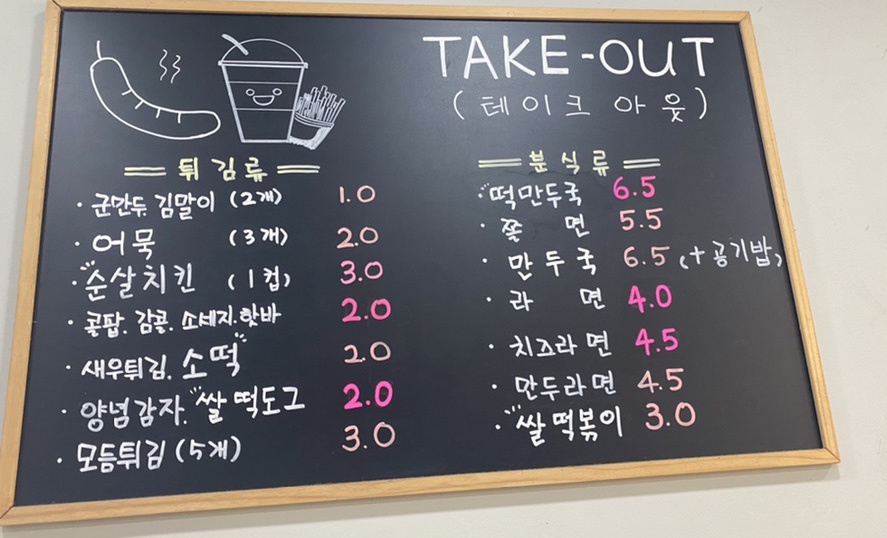 TAKE-OUT
(테이크 아웃)
튀김류
· 군만두. 김말이 (2개) 1.0
· 어묵 (3개) 2.0
· 순살치킨 (1컵) 3.0
· 콜팝. 감콜. 소세지.핫바 2.0
· 새우튀김. 소떡 2.0
· 양념감자. 쌀떡도그 2.0
· 모듬튀김 (5개) 3.0
분식류
· 떡만두국 6.5
· 쫄면 5.5
· 만두국 6.5 (+공기밥)
· 라면 4.0
· 치즈라면 4.5
· 만두라면 4.5
· 쌀떡볶이 3.0